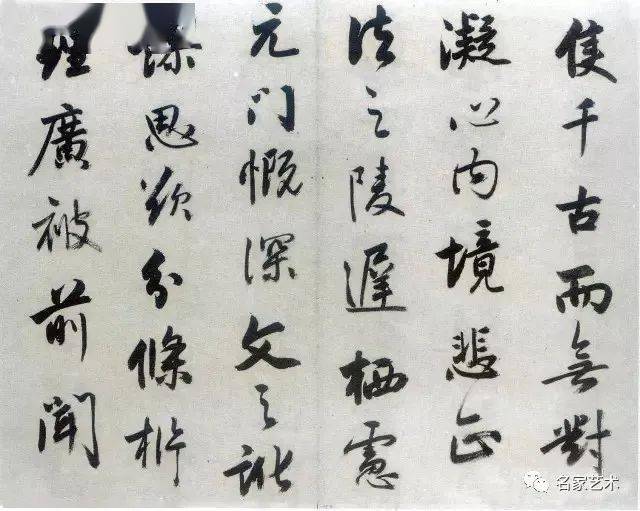 隻千古而無對
凝心内境悲正
法之陵遲栖慮
元門慨深文之訛
思欲分條析
理廣被前聞
名家艺术